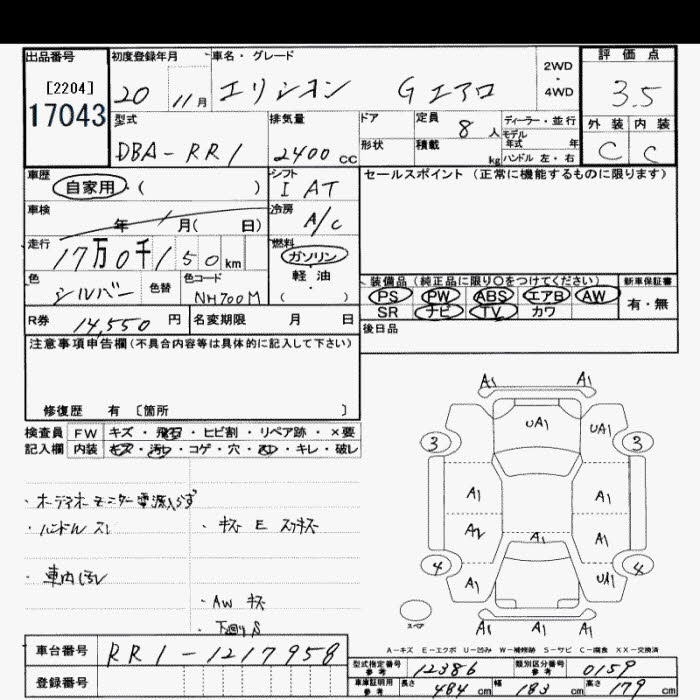 出品番号 初度登録年月 車名・グレード 2WD・4WD 評価点
[2204] 17043 20 11月 エリシオン Gエアロ 3.5
型式 排気量 ドア 定員 8人 ディーラー・並行 外装 内装
モデル年式 年
DBA-RR1 2400cc 形状 積載 kg ハンドル 左・右 C C
車歴 自家用・( ) シフト I AT セールスポイント (正常に機能するものに限ります)
車検 年 月( 日) 冷房 A/C
走行 17万0千150km 燃料 ガソリン・軽油・( )
色 シルバー 色替 色コード NH700M 装備品 (純正品に限り○をつけてください) 新車保証書
PS PW ABS エアB AW 有・無
R券 14,550円 名変期限 月 日 SR ナビ TV カワ
注意事項申告欄(不具合内容等は具体的に記入して下さい) 後日品
修復歴 有 〔箇所 〕
検査員 FW キズ・飛石・ヒビ割・リペア跡・×要
記入欄 内装 キズ・汚レ・コゲ・穴・・キレ・破レ
A1 A1
UA1 UA1
3 3
A1 A1
A2 A1 A1
4 4
A1 UA1
A1 A1 A1
スペア
・オーディオモニター電源入らず
・ハンドルスレ ・キズ E スリキズ
・車内汚レ
・AW キズ
・下廻りS
A-キズ E-エクボ U-凹み W-補修跡 S-サビ C-腐食 XX-交換済
車台番号 RR1-1217958 型式指定番号 参考 12386 類別区分番号 参考 0159
登録番号 車庫証明用 参考 長さ 484cm 幅 183cm 高さ 179cm